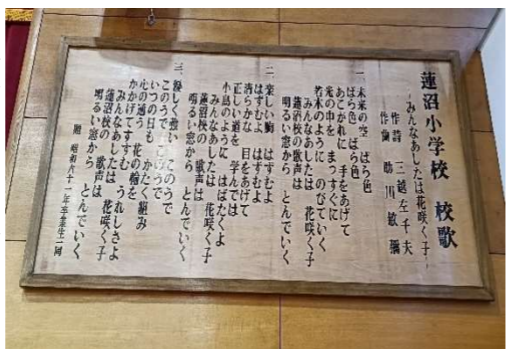 蓮沼小学校 校歌
～みんなあしたは花咲く子～
作詩 三越左千夫
作曲 助川敏彌
一、未来の空 ばら色
ばら色 ばら色
あこがれに 手をあげて
光の中を まっすぐに
若木のように のびていく
みんなあしたは 花咲く子
蓮沼校の 歌声は
明るい窓から とんでいく
二、楽しい胸 はずむよ
はずむよ はずむよ
清らかな 目をあげて
正しい道を 学んでは
小鳥のように はばたくよ
みんなあしたは 花咲く子
蓮沼校の 歌声は
明るい窓から とんでいく
三、優しく強い このうで
このうで このうで
いつの日も かたく組み
心の通う 花の輪を
かかげてすすむ うれしさよ
みんなあしたは 花咲く子
蓮沼校の 歌声は
明るい窓から とんでいく
贈 昭和六十一年卒業生一同